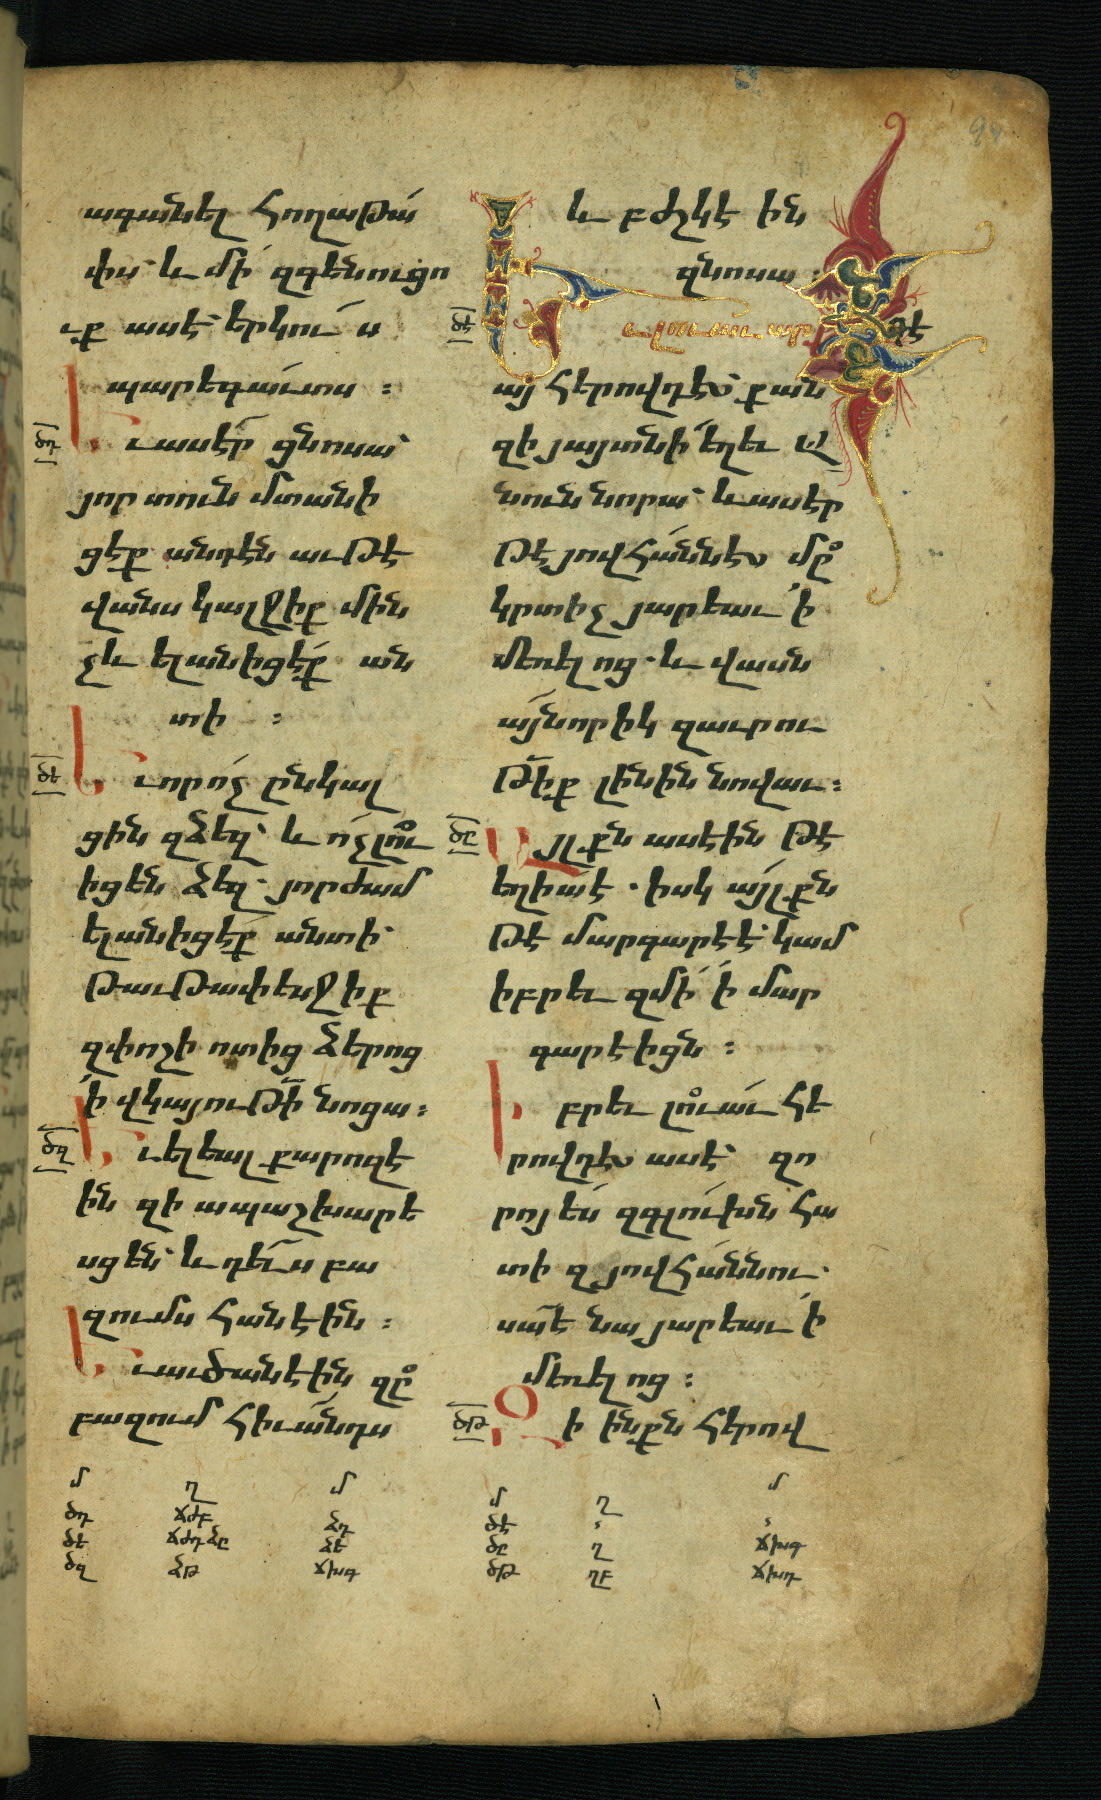 ագանել հողաթա
փս՝ և մի՛ զգենուցո
ւք ասէ՝ երկուս
պարեգաւտս ։
ծդ
Եւ ասէր ցնոսա՝
յոր տուն մտանի
ցէք անդէն աւթե
վանս կալջիք մին
չև ելանիցէք ան
տի ։
ծե
Եւ որ ոչ ընկալ
ցին զձեզ՝ և ոչ լու
իցեն ձեզ· յորժամ
ելանիցէք անտի՝
թաւթափեսջիք
զփոշի ոտից ձերոց
ի վկայութի նոցա ։
ծզ
Եւ ելեալ քարոզէ
ին զի ապաշխարե
սցեն՝ և դևս բա
զումս հանէին ։
Եւ աւծանէին ձը
բազում հիւանդս
և բժշկէին
զնոսա ։
ծէ
Եւ լուաւ արքայ
հերովդէս՝ քան
զի յայտնի եղև ա
նուն նորա՝ և ասէր
թէ յովհաննէս մը
կրտիչ յարեաւ ի
մեռելոց· և վասն
այնորիկ զաւրու
թիք լինին նովաւ ։
ծը
Այլքն ասէին թէ
եղիա է · իսկ այլքն
թէ մարգարէ է՝ կամ
իբրև զմի ի մար
գարէիցն ։
Իբրև լուաւ հե
րովդէս ասէ՝ զո
րոյ ես զգլուխն հա
տի զյովհաննու·
սա է նա յարեաւ ի
մեռելոց ։
ծթ
Զի ինքն հերով
մ ղ մ
ծդ ճժբ ձդ
ծե ճժդ ձը ձե
ծզ ձթ ճխգ
մ ղ մ
ծէ
ծը ղ ճխգ
ծթ ղբ ճխդ